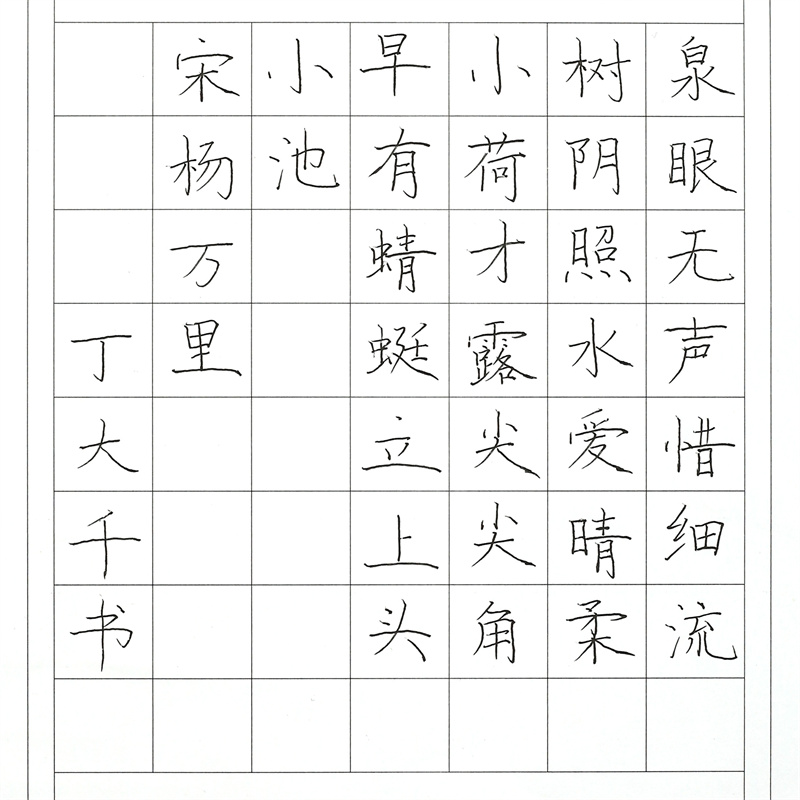 泉眼无声惜细流
树阴照水爱晴柔
小荷才露尖尖角
早有蜻蜓立上头
小池
宋杨万里
丁大千书